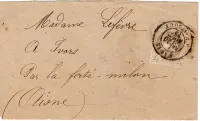 Madame Lefèvre
A Ivors
Par la ferté-milon
(Oise)